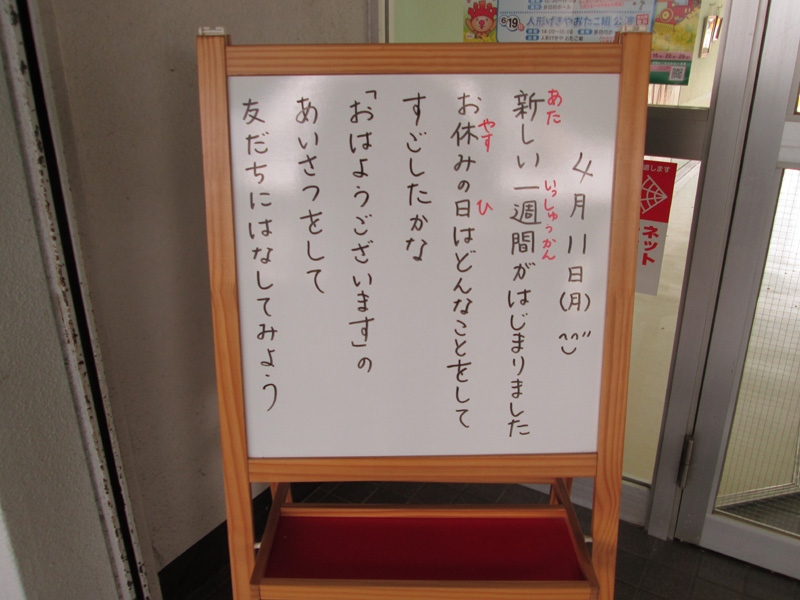 4月11日(月)
新しい一週間がはじまりました
あた
いっしゅうかん
お休みの日はどんなことをして
やす
ひ
すごしたかな
「おはようございます」の
あいさつをして
友だちにはなしてみよう
人形げきやおたこ組 公演
19
ネット